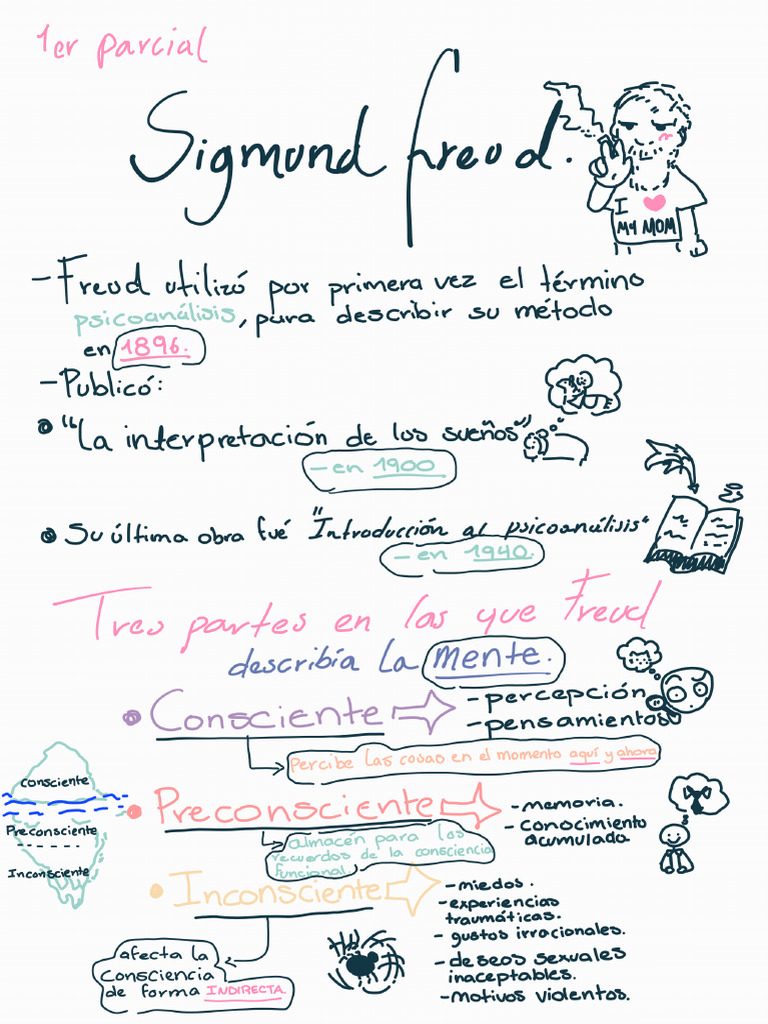 1er parcial
Sigmund freud.
I ♥
MY MOM
- Freud utilizó por primera vez el término
psicoanálisis, para describir su método
en 1896.
- Publicó:
• "La interpretación de los sueños"
- en 1900
• Su última obra fué "Introducción al psicoanálisis"
- en 1940.
Tres partes en las que Freud
describía la mente.
• Consciente
- percepción
- pensamientos
percibe las cosas en el momento aquí y ahora
Consciente
Preconsciente
Inconsciente
• Preconsciente
- memoria.
- conocimiento
acumulado
almacén para los
recuerdos de la consciencia
funcional
• Inconsciente
- miedos.
- experiencias
traumáticas.
- gustos irracionales.
- deseos sexuales
inaceptables.
- motivos violentos.
afecta la
consciencia
de forma INDIRECTA.